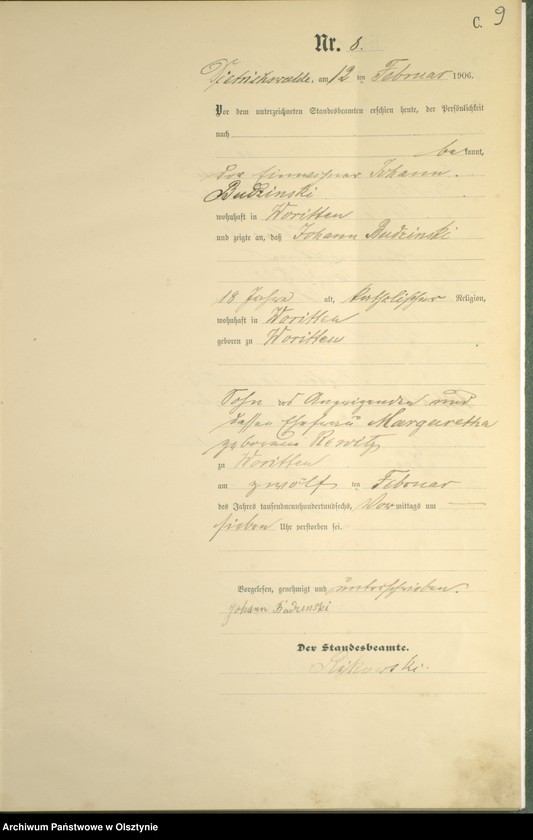 C. 9
Nr. 8.
Dietrichswalde, am 12 ten Februar 1906.
Vor dem unterzeichneten Standesbeamten erschien heute, der Persönlichkeit
nach
bekannt,
der Einwohner Johann
Budzinski
wohnhaft in Woritten
und zeigte an, daß Johann Budzinski
18 Jahre alt, katholischer Religion,
wohnhaft in Woritten
geboren zu Woritten
Sohn des Anzeigenden und
dessen Ehefrau Margaretha
geborene Rewitz
zu Woritten
am zwölf ten Februar
des Jahres tausendneunhundertundsechs, Vormittags um
sieben Uhr verstorben sei.
Vorgelesen, genehmigt und unterschrieben.
Johann Budzinski
Der Standesbeamte.
Archiwum Państwowe w Olsztynie